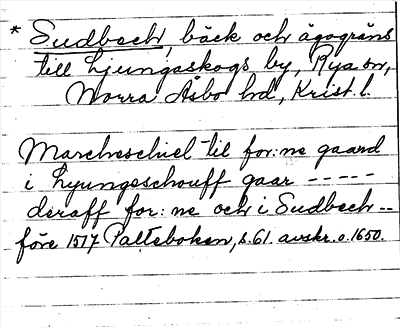 * Sudbech, bäck och ägogräns
till Ljungaskogs by, Rya sn,
Norra Åsbo hd, Krist. l.
Marcheschiel til for:ne gaard
i Lyungeschouff gaar -----
deraff for:ne och i Sudbech --
före 1517 Palteboken, s. 61. avskr. o. 1650.